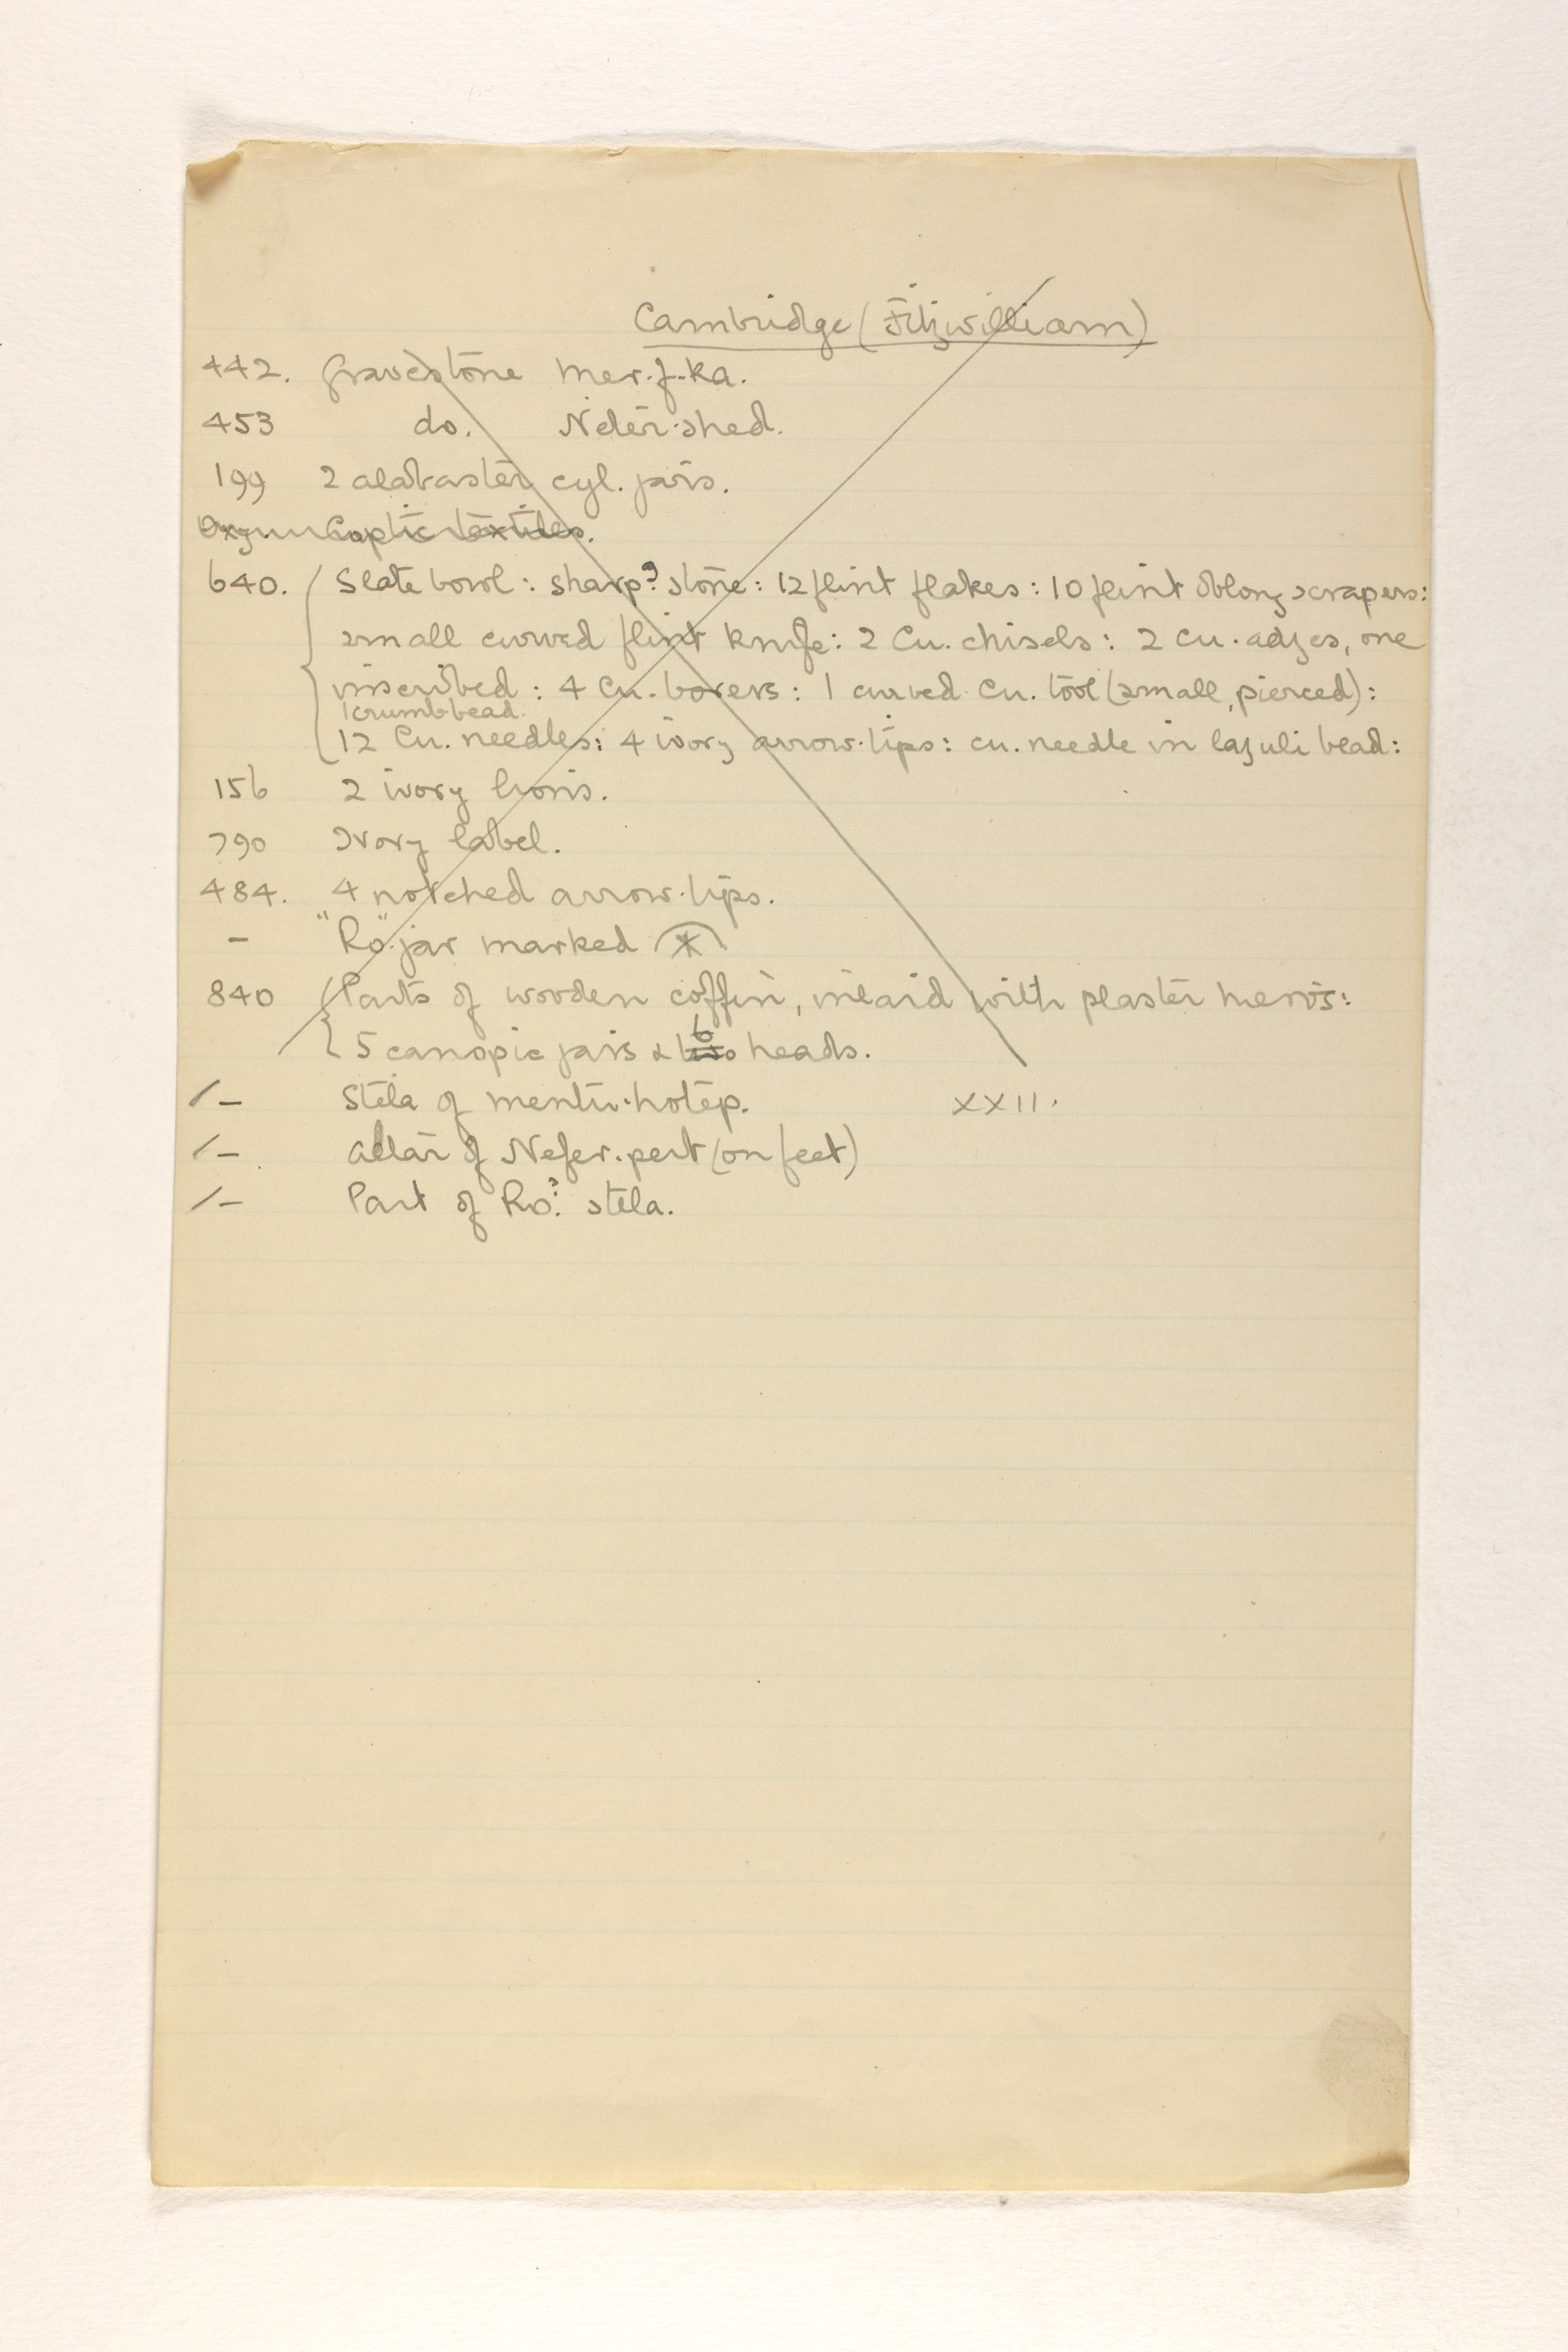 Cambridge (Fitzwilliam)
442. Gravestone Mer.f.Ka.
453 do. Neter.shed.
199 2 alabaster cyl. jars.
Coptic textiles.
640. Slate bowl: sharp? stone: 12 flint flakes: 10 flint oblong scrapers:
small curved flint knife: 2 Cu. chisels: 2 Cu. adzes, one
inscribed: 4 Cu. borers: 1 curved Cu. tool (small, pierced):
1 crumb bead.
12 Cu. needles: 4 ivory arrow.tips: cu. needle in lazuli bead:
156 2 ivory lions.
790 Ivory label.
484. 4 notched arrow.tips.
- "Ro" jar marked
840 Parts of wooden coffin, inlaid with plaster hiero's:
5 canopic jars & 6 heads.
/- Stela of Mentu.hotep. XXII.
/- Altar of Nefer.pert (on feet)
/- Part of Ro? stela.